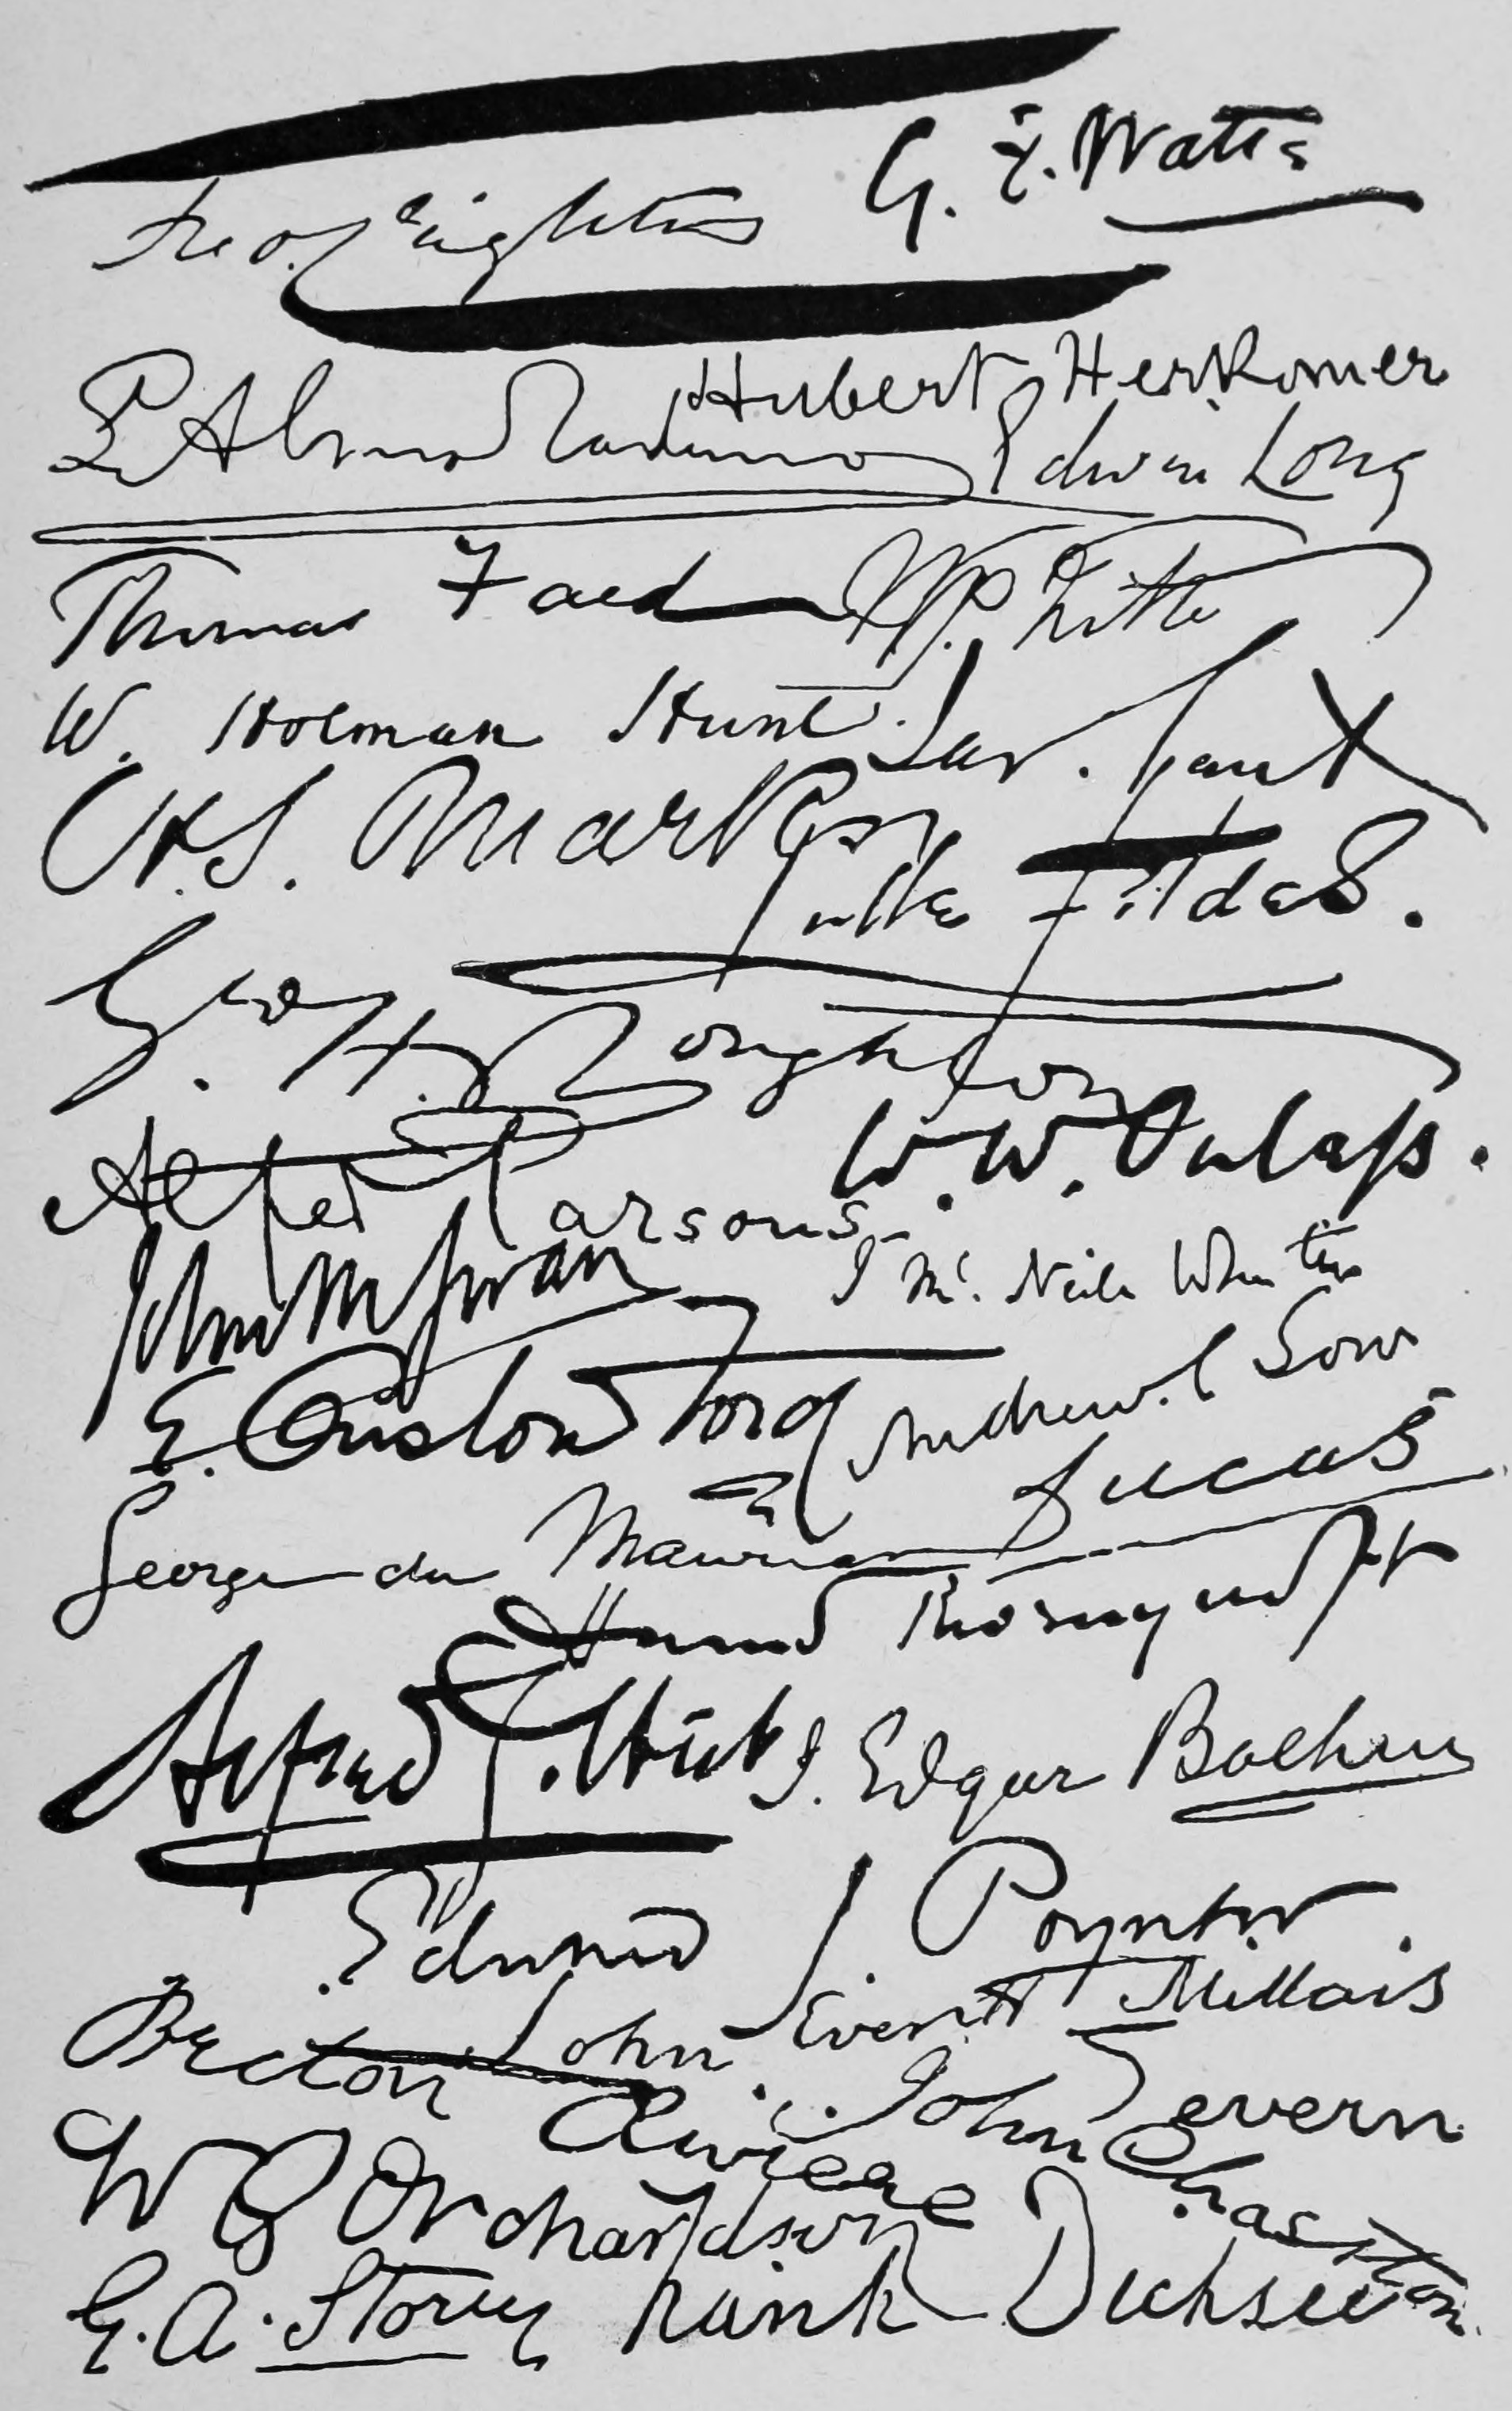 Fred Leighton
G. F. Watts
Hubert Herkomer
L Alma Tadema
Edwin Long
Thomas Faed
W. P. Frith
W. Holman Hunt
H. S. Marks
Luke Fildes.
Geo H. Boughton
W. W. Ouless.
Alfred Parsons
John M Swan
J Mc. Neill Whistler
E. Onslow Ford
Andrew. C Gow
Lucas
George du Maurier
Hamo Thornycroft
Alfred Gilbert
J. Edgar Boehm
Edward J. Poynter.
John Everett Millais
Briton Riviere
John Charlton
Severn
W Q Orchardson
G. A. Storey
Frank Dicksee